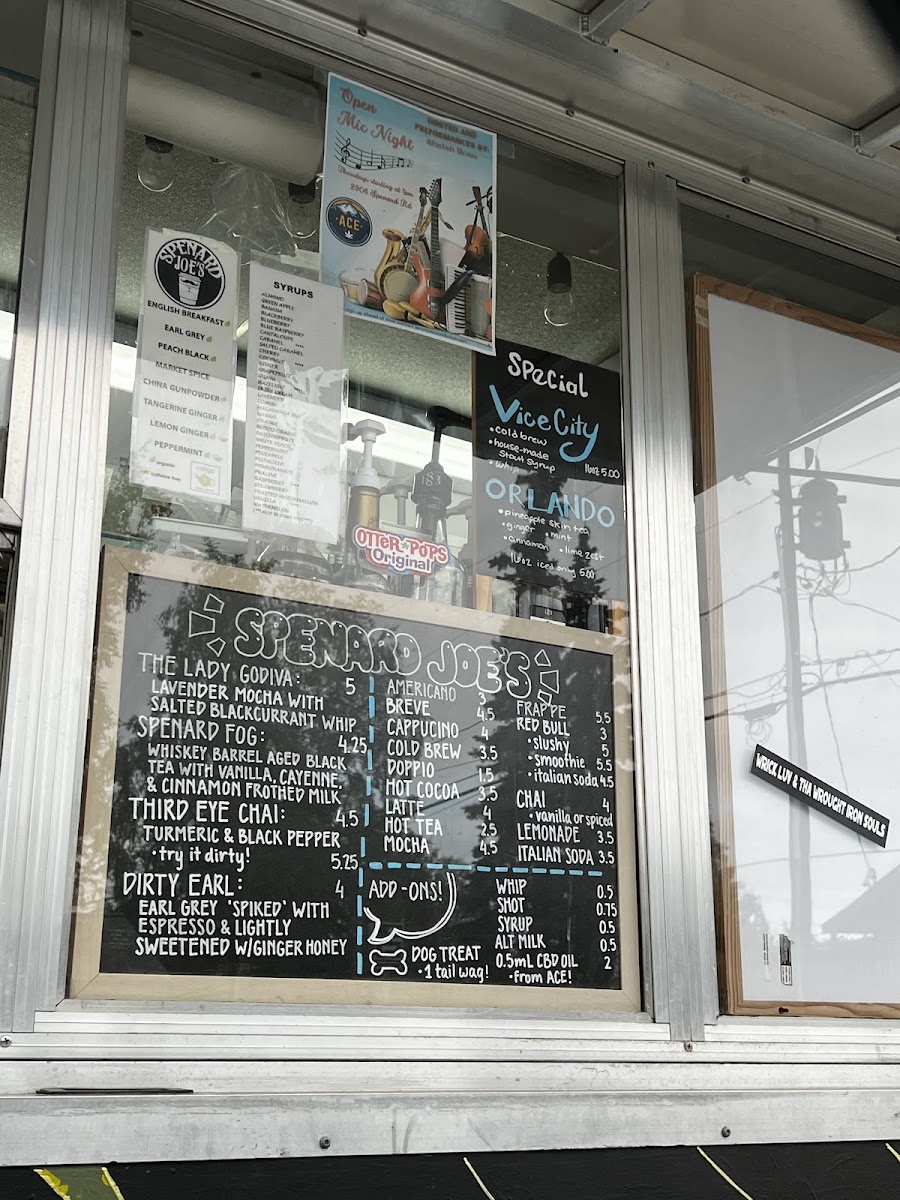 Open
Mic Night
HOSTED AND
PREFORMANCES BY:
Thursdays starting at
2906 Spenard Rd.
ACE
SPENARD
JOE'S
ENGLISH BREAKFAST
EARL GREY
PEACH BLACK
MARKET SPICE
CHINA GUNPOWDER
TANGERINE GINGER
LEMON GINGER
PEPPERMINT
organic
caffeine free
SYRUPS
ALMOND
GREEN APPLE
BANANA
BLACKBERRY
BLUEBERRY
BLUE RASPBERRY
CANTALOUPE
CARAMEL
SALTED CARAMEL
CHERRY
COCONUT
GINGER
GRAPEFRUIT
GUAVA
HAZELNUT
IRISH CREAM
LAVENDER
LEMON
MACADAMIA NUT
MANGO
ORANGE
BLOOD ORANGE
PASSIONFRUIT
WHITE PEACH
PEPPERMINT
PINEAPPLE
PISTACHIO
POMEGRANATE
PRALINE
RASPBERRY
STRAWBERRY
TOASTED MARSHMALLOW
VANILLA
WATERMELON
Special
Vice City
• cold brew
• house-made
Stout syrup
• whip
16oz 5.00
ORLANDO
• pineapple skin tea
• ginger • mint
• cinnamon • lime zest
16oz iced only 5.00
183
OTTER POPS
Original
SPENARD JOE'S
THE LADY GODIVA: 5
LAVENDER MOCHA WITH
SALTED BLACKCURRANT WHIP
SPENARD FOG: 4.25
WHISKEY BARREL AGED BLACK
TEA WITH VANILLA, CAYENNE,
& CINNAMON FROTHED MILK
THIRD EYE CHAI: 4.5
TURMERIC & BLACK PEPPER
• try it dirty! 5.25
DIRTY EARL: 4
EARL GREY 'SPIKED' WITH
ESPRESSO & LIGHTLY
SWEETENED W/GINGER HONEY
AMERICANO 3
BREVE 4.5
CAPPUCINO 4
COLD BREW 3.5
DOPPIO 1.5
HOT COCOA 3.5
LATTE 4
HOT TEA 2.5
MOCHA 4.5
FRAPPE 5.5
RED BULL 3
• slushy 5
• smoothie 5.5
• italian soda 4.5
CHAI 4
• vanilla or spiced
LEMONADE 3.5
ITALIAN SODA 3.5
ADD-ONS!
DOG TREAT
• 1 tail wag!
WHIP 0.5
SHOT 0.75
SYRUP 0.5
ALT MILK 0.5
0.5mL CBD OIL 2
• from ACE!
WRICK LUV & THA WROUGHT IRON SOULS